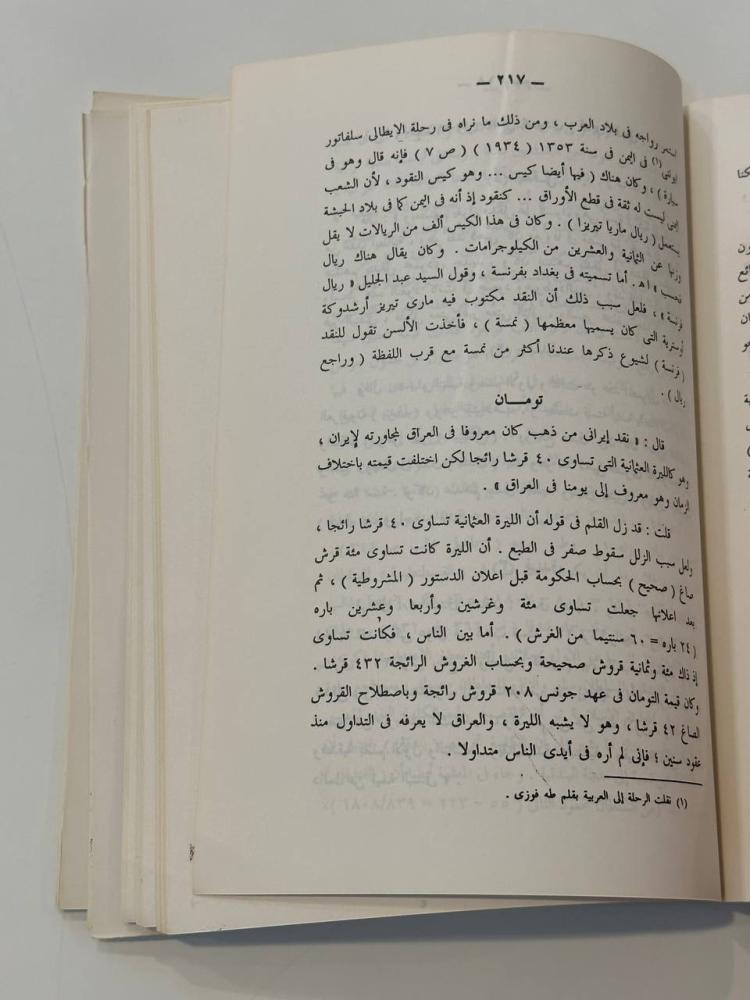 — ٢١٧ —
استمر رواجه فى بلاد العرب ، ومن ذلك ما نراه فى رحلة الإيطالى سلفاتور
ابونتى (١) فى اليمن فى سنة ١٣٥٣ ( ١٩٣٤ ) ( ص ٧ ) فإنه قال وهو فى
سيارة ) ، وكان هناك ( فيها أيضا كيس ... وهو كيس النقود ، لأن الشعب
اليمنى ليست له ثقة فى قطع الأوراق ... كنقود إذ أنه فى اليمن كما فى بلاد الحبشة
يستعمل ( ريال ماريا تيريزا ) . وكان فى هذا الكيس ألف من الريالات لا يقل
وزنها عن الثمانية والعشرين من الكيلوجرامات . وكان يقال هناك ريال
فحسب » اه . أما تسميته فى بغداد بفرنسة ، وقول السيد عبد الجليل « ريال
فرنسة » ، فلعل سبب ذلك أن النقد مكتوب فيه مارى تيريز أرشدوكة
أوسترية التى كان يسميها معظمها ( نمسة ) ، فأخذت الألسن تقول للنقد
( فرنسة ) لشيوع ذكرها عندنا أكثر من نمسة مع قرب اللفظة ( وراجع
ريال ) .
تومـــان
قال : « نقد إيرانى من ذهب كان معروفا فى العراق لمجاورته لإيران ،
وهو كالليرة العثمانية التى تساوى ٤٠ قرشا رائجا لكن اختلفت قيمته باختلاف
الزمان وهو معروف إلى يومنا فى العراق » .
قلت : قد زل القلم فى قوله أن الليرة العثمانية تساوى ٤٠ قرشا رائجا ،
ولعل سبب الزلل سقوط صفر فى الطبع . أن الليرة كانت تساوى مئة قرش
صاغ ( صحيح ) بحساب الحكومة قبل اعلان الدستور ( المشروطية ) ، ثم
بعد اعلانها جعلت تساوى مئة وغرشين وأربعا وعشرين باره
( ٢٤ باره = ٦٠ سنتيما من الغرش ) . أما بين الناس ، فكانت تساوى
إذ ذاك مئة وثمانية قروش صحيحة وبحساب الغروش الرائجة ٤٣٢ قرشا .
وكان قيمة التومان فى عهد جونس ٢٠٨ قروش رائجة وباصطلاح القروش
الصاغ ٤٢ قرشا ، وهو لا يشبه الليرة ، والعراق لا يعرفه فى التداول منذ
عقود سنين ؛ فإنى لم أره فى أيدى الناس متداولا .
(١) نقلت الرحلة إلى العربية بقلم طه فوزى .